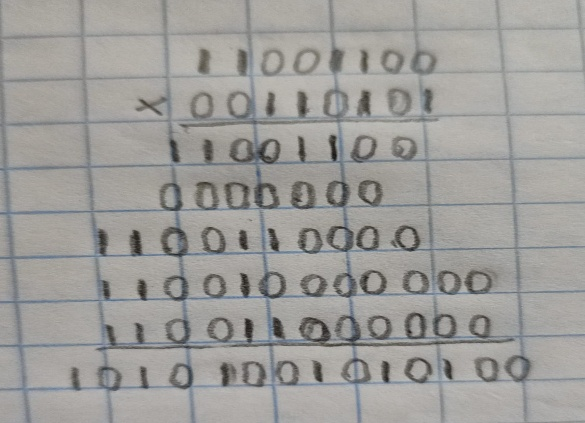 11001100
× 00110101
11001100
0000000
1100110000
110010000000
110011000000
10101001010100